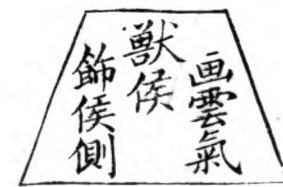 画雲氣
獸侯
飾侯側